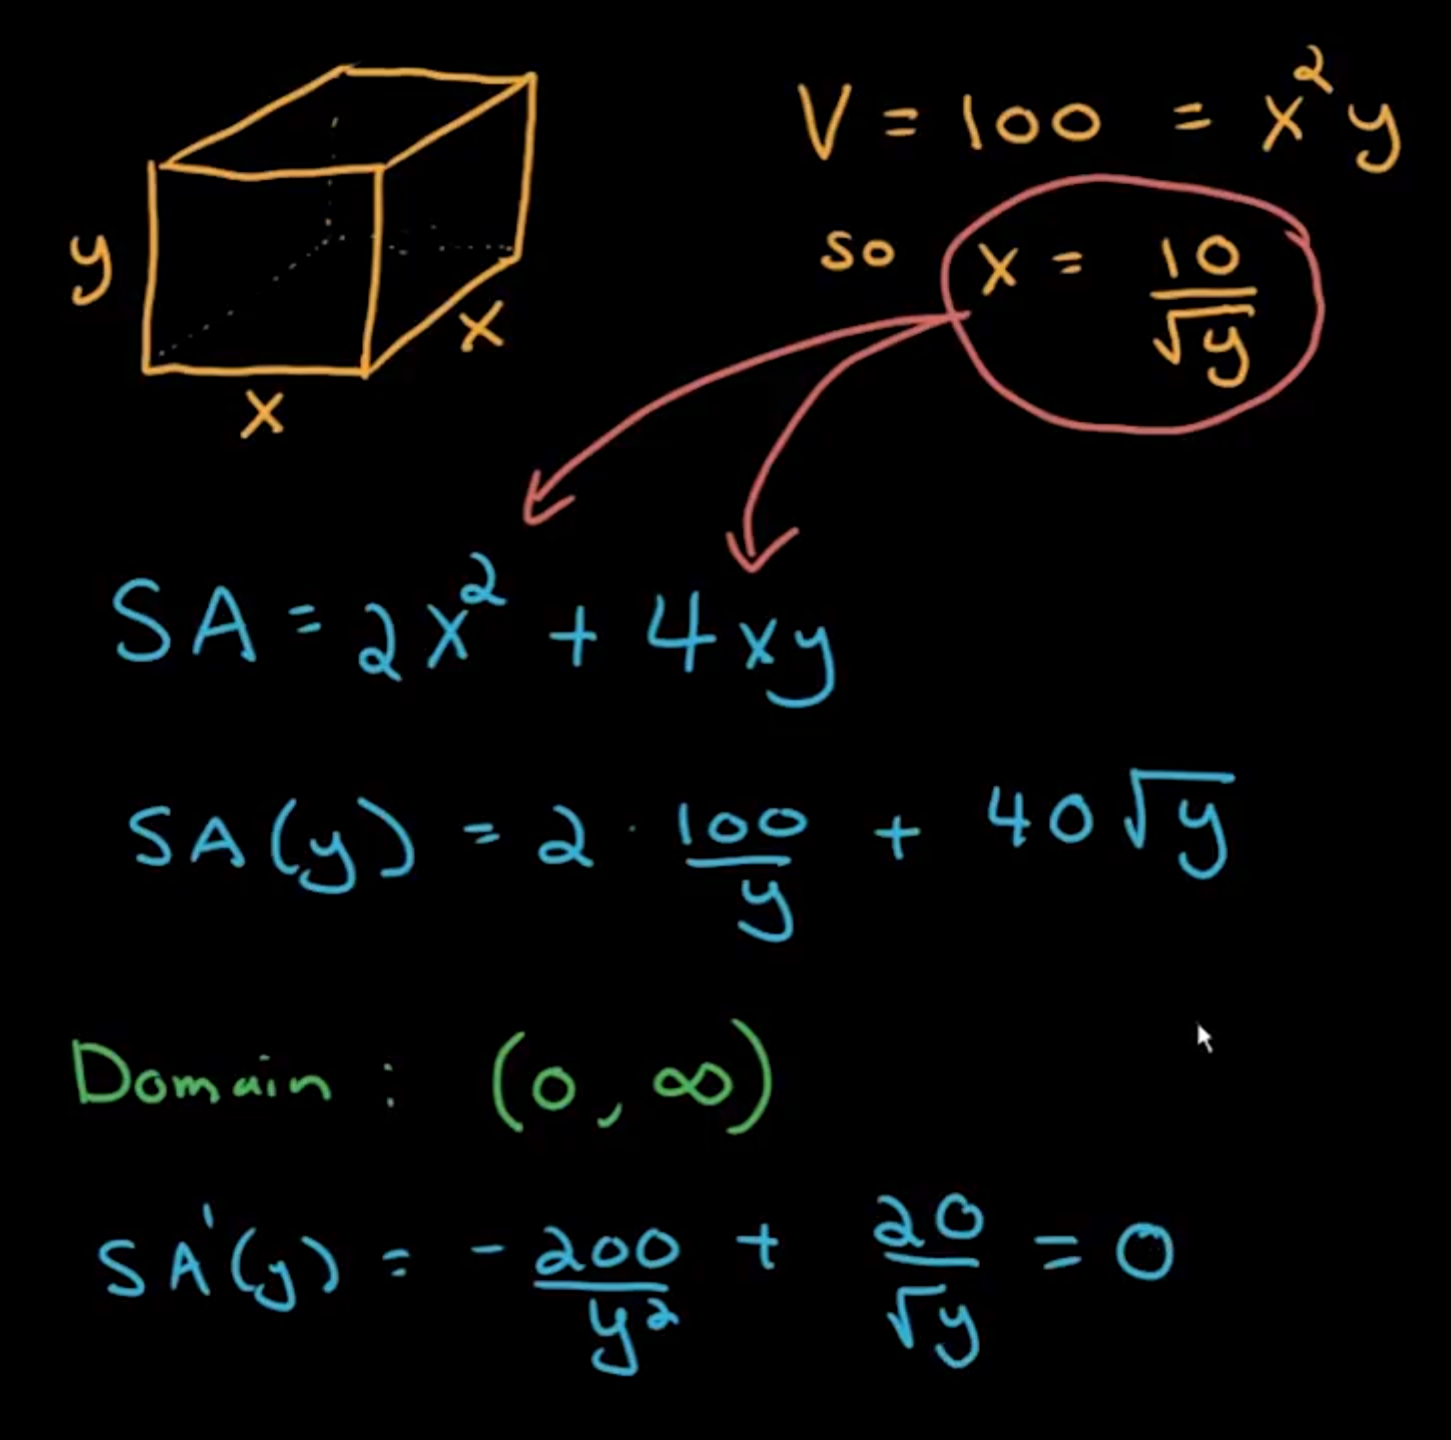 V = 100 = x²y
so x = 10/√y
y
x
x
SA = 2x² + 4xy
SA(y) = 2 · 100/y + 40√y
Domain : (0, ∞)
SA'(y) = - 200/y² + 20/√y = 0